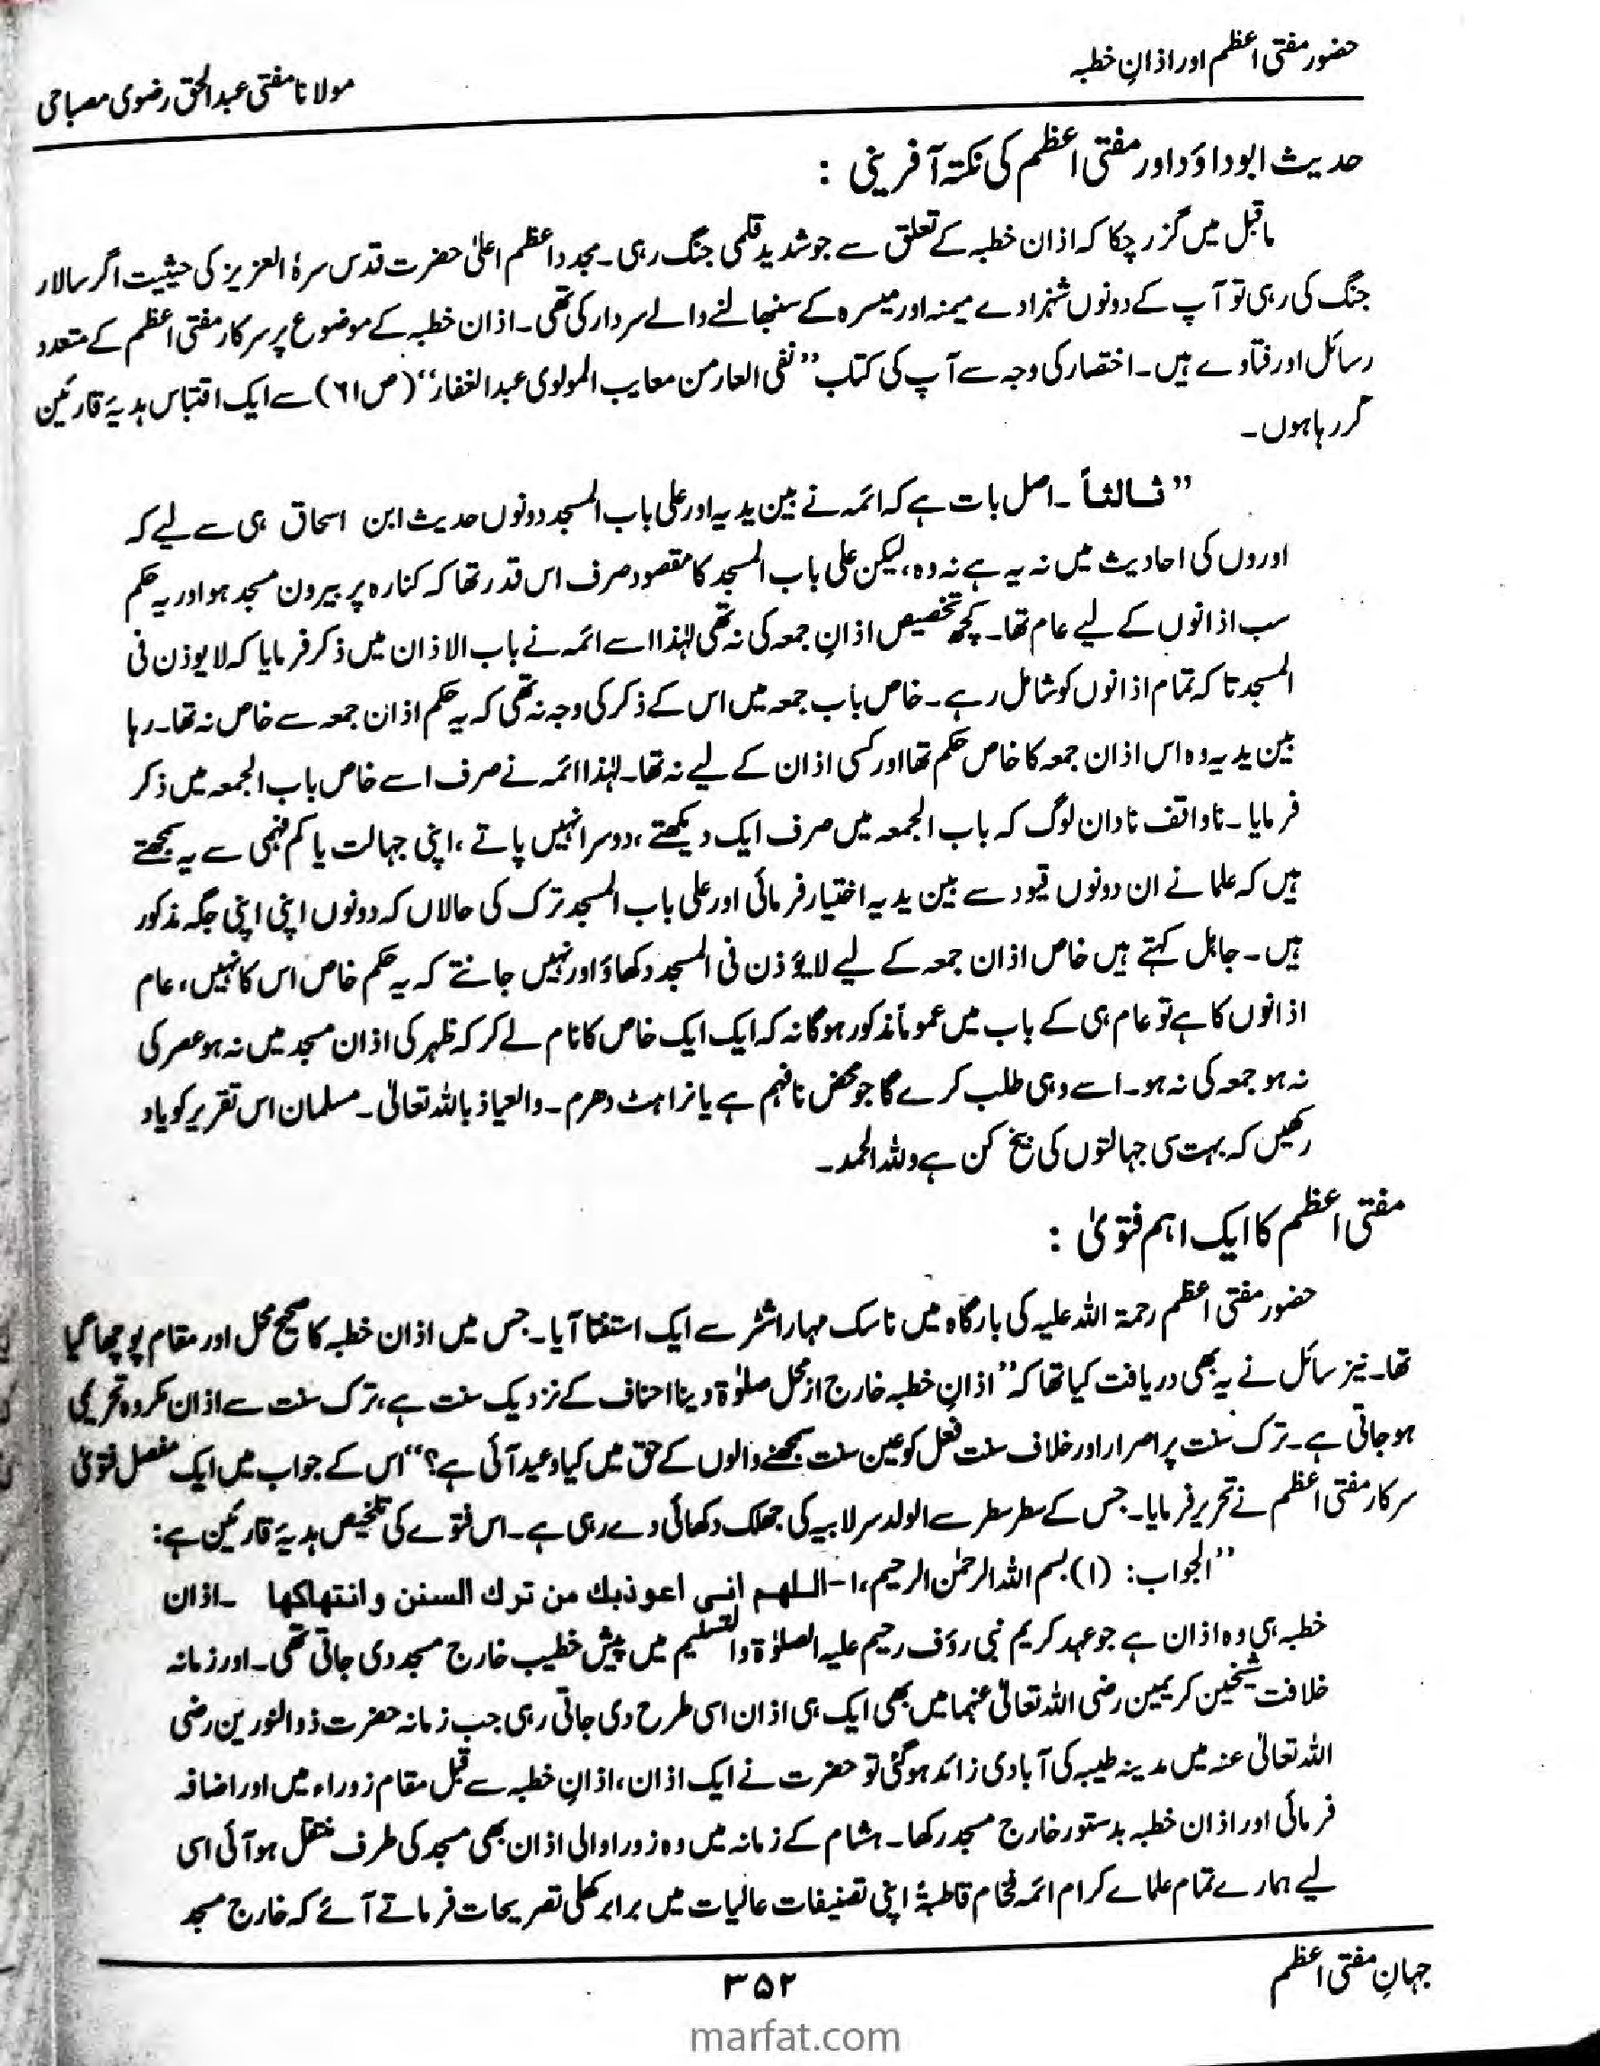 حضور مفتی اعظم اور اذانِ خطبہ
مولانا مفتی عبدالحق رضوی مصباحی
حدیث ابوداؤد اور مفتی اعظم کی نکتہ آفرینی :
ماقبل میں گزر چکا کہ اذان خطبہ کے تعلق سے جو شدید قلمی جنگ رہی۔ مجدد اعظم اعلیٰ حضرت قدس سرہٗ العزیز کی حیثیت اگر سالار
جنگ کی رہی تو آپ کے دونوں شہزادے میمنہ اور میسرہ کے سنبھالنے والے سردار کی تھی۔ اذان خطبہ کے موضوع پر سرکار مفتی اعظم کے متعدد
رسائل اور فتاوے ہیں۔ اختصار کی وجہ سے آپ کی کتاب ”نفی العار من معایب المولوی عبدالغفار“ (ص۶۱) سے ایک اقتباس ہدیۂ قارئین
کر رہا ہوں۔
”ثالثاً۔ اصل بات ہے کہ ائمہ نے بین یدیہ اور علی باب المسجد دونوں حدیث ابن اسحاق ہی سے لیے کہ
اوروں کی احادیث میں نہ یہ ہے نہ وہ، لیکن علی باب المسجد کا مقصود صرف اس قدر تھا کہ کنارہ پر بیرون مسجد ہو اور یہ حکم
سب اذانوں کے لیے عام تھا۔ کچھ تخصیص اذانِ جمعہ کی نہ تھی لہٰذا اسے ائمہ نے باب الاذان میں ذکر فرمایا کہ لا یوذن فی
المسجد تا کہ تمام اذانوں کو شامل رہے۔ خاص باب جمعہ میں اس کے ذکر کی وجہ نہ تھی کہ یہ حکم اذان جمعہ سے خاص نہ تھا۔ رہا
بین یدیہ وہ اس اذان جمعہ کا خاص حکم تھا اور کسی اذان کے لیے نہ تھا۔ لہٰذا ائمہ نے صرف اسے خاص باب الجمعہ میں ذکر
فرمایا۔ ناواقف نادان لوگ کہ باب الجمعہ میں صرف ایک دیکھتے، دوسرا نہیں پاتے، اپنی جہالت یا کم فہمی سے یہ سمجھتے
ہیں کہ علما نے ان دونوں قیود سے بین یدیہ اختیار فرمائی اور علی باب المسجد ترک کی حالاں کہ دونوں اپنی اپنی جگہ مذکور
ہیں۔ جاہل کہتے ہیں خاص اذان جمعہ کے لیے لا یؤذن فی المسجد دکھاؤ اور نہیں جانتے کہ یہ حکم خاص اس کا نہیں، عام
اذانوں کا ہے تو عام ہی کے باب میں عموماً مذکور ہوگا نہ کہ ایک ایک خاص کا نام لے کر کہ ظہر کی اذان مسجد میں نہ ہو عصر کی
نہ ہو جمعہ کی نہ ہو۔ اسے وہی طلب کرے گا جو محض نافہم ہے یا نرا ہٹ دھرم۔ والعیاذ باللہ تعالیٰ۔ مسلمان اس تقریر کو یاد
رکھیں کہ بہت سی جہالتوں کی بیخ کن ہے وللہ الحمد۔
مفتی اعظم کا ایک اہم فتویٰ :
حضور مفتی اعظم رحمۃ اللہ علیہ کی بارگاہ میں ناسک مہاراشٹر سے ایک استفتا آیا۔ جس میں اذان خطبہ کا صحیح محل اور مقام پوچھا گیا
تھا۔ نیز سائل نے یہ بھی دریافت کیا تھا کہ ”اذانِ خطبہ خارج از محل صلوٰۃ دینا احناف کے نزدیک سنت ہے، ترک سنت سے اذان مکروہ تحریمی
ہوجاتی ہے۔ ترک سنت پر اصرار اور خلاف سنت فعل کو عین سنت سمجھنے والوں کے حق میں کیا وعید آئی ہے؟“ اس کے جواب میں ایک مفصل فتویٰ
سرکار مفتی اعظم نے تحریر فرمایا۔ جس کے سطر سطر سے الولد سر لابیہ کی جھلک دکھائی دے رہی ہے۔ اس فتوے کی تلخیص ہدیۂ قارئین ہے:
”الجواب: (۱) بسم اللہ الرحمٰن الرحیم، ا-اللهم انی اعوذبك من ترك السنن و انتهاكها ۔اذان
خطبہ ہی وہ اذان ہے جو عہد کریم نبی رؤف رحیم علیہ الصلوٰۃ والتسلیم میں پیش خطیب خارج مسجد دی جاتی تھی۔ اور زمانہ
خلافت شیخین کریمین رضی اللہ تعالیٰ عنہما میں بھی ایک ہی اذان اسی طرح دی جاتی رہی جب زمانہ حضرت ذوالنورین رضی
اللہ تعالیٰ عنہ میں مدینہ طیبہ کی آبادی زائد ہوگئی تو حضرت نے ایک اذان، اذانِ خطبہ سے قبل مقام زوراء میں اور اضافہ
فرمائی اور اذان خطبہ بدستور خارج مسجد رکھا۔ ہشام کے زمانہ میں وہ زورا والی اذان بھی مسجد کی طرف منتقل ہو آئی اسی
لیے ہمارے تمام علماے کرام ائمہ فخام قاطبۃً اپنی تصنیفات عالیات میں برابر کھلی تصریحات فرماتے آئے کہ خارج مسجد
جہانِ مفتی اعظم
۳۵۲
marfat.com